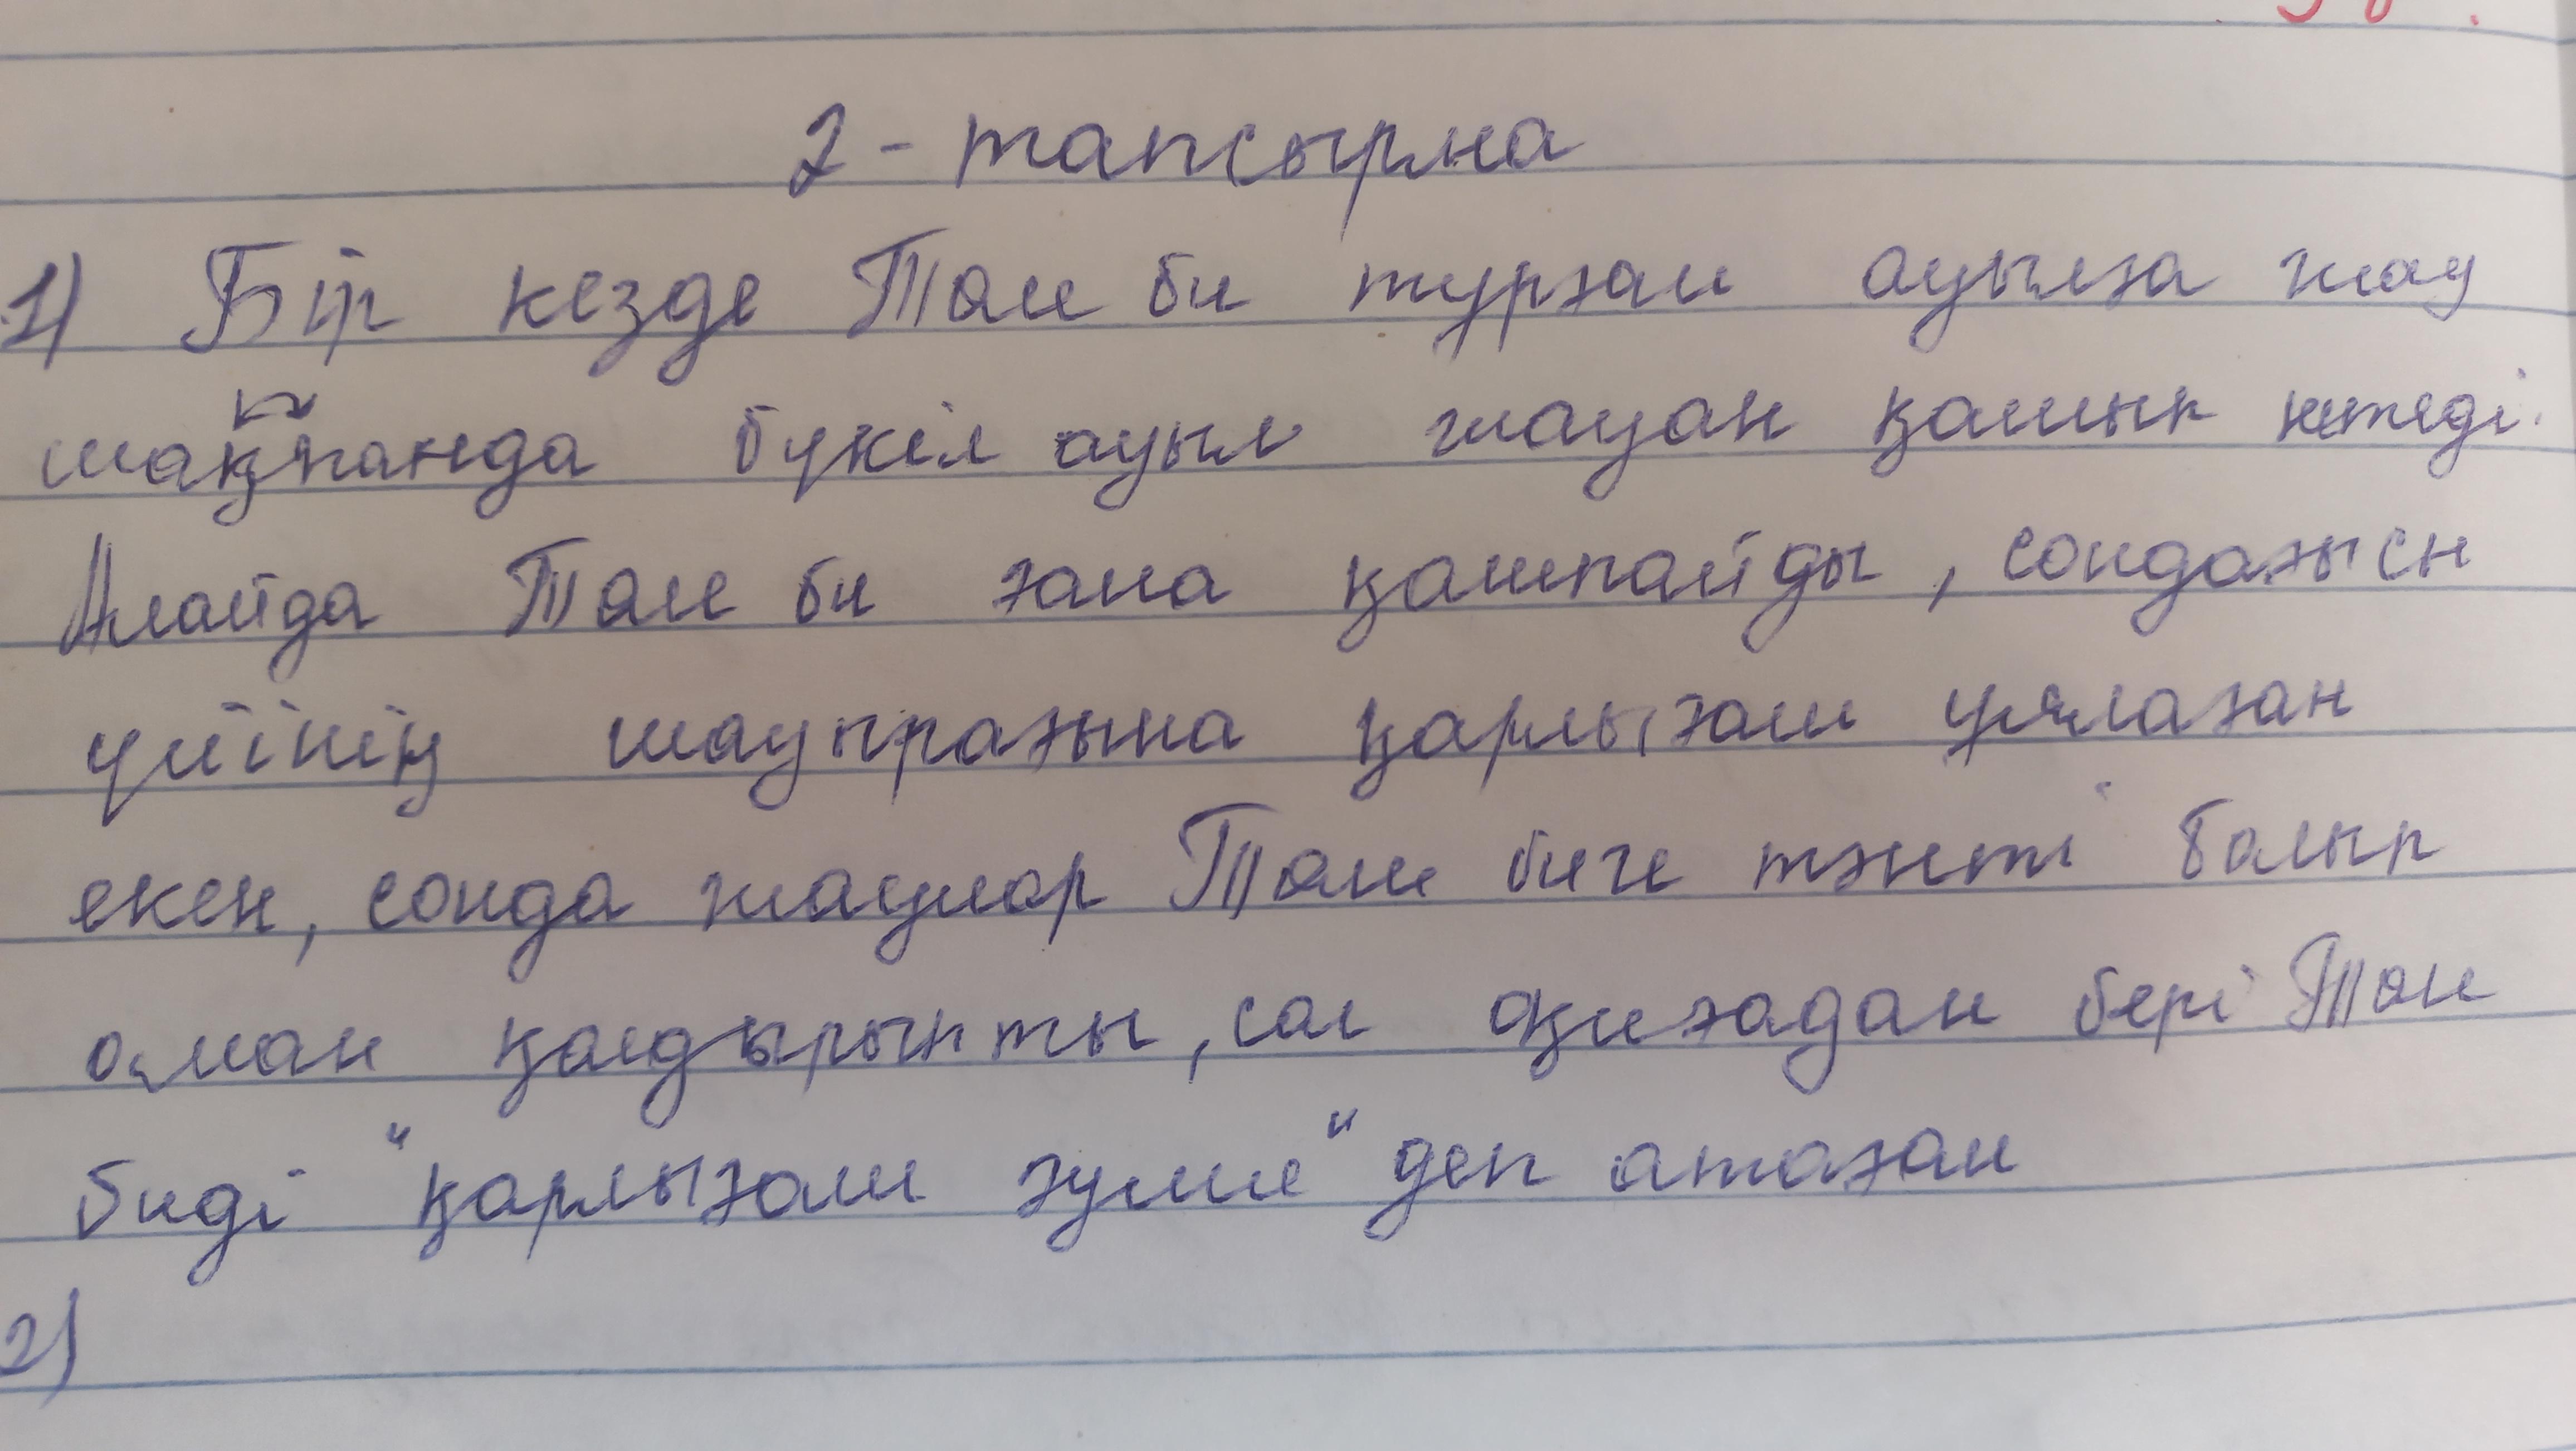 2-тапсырма
1) Бір кезде Төле би турған ауылға жау
шапқанда бүкіл ауыл жаудан қашып кетеді.
Алайда Төле би ғана қашпайды, сондағысы
үйінің шаңырағына қарлығаш ұялаған
екен, сонда жаулар Төле биге тәнті болып
аман қалдырыпты, сол оқиғадан бері Төле
биді "қарлығаш әулие" деп атаған
2)